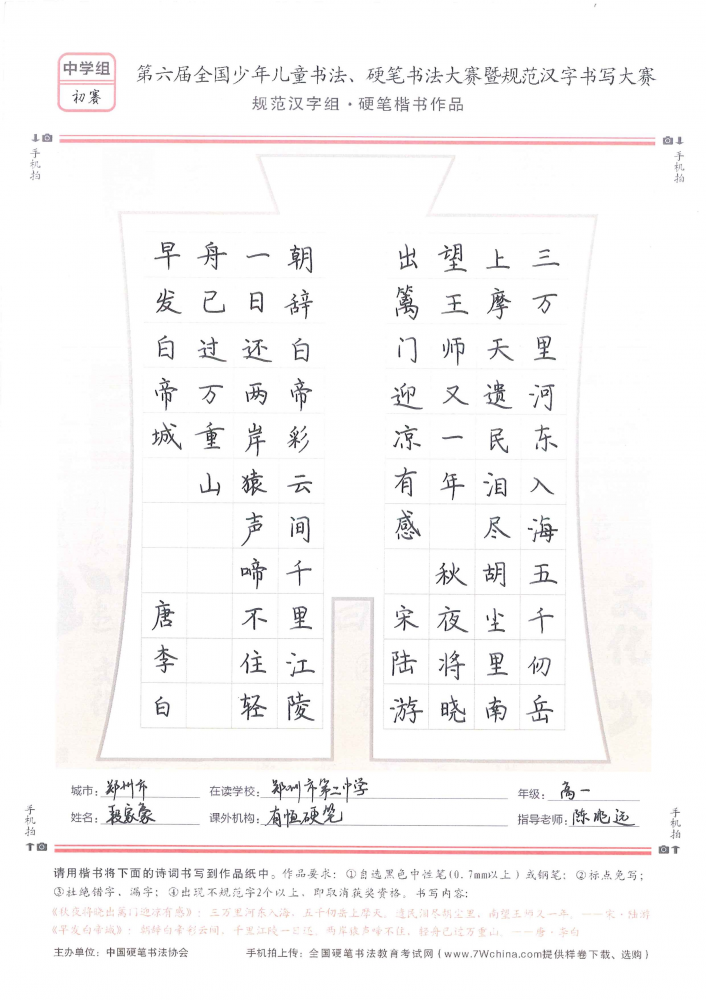 中学组
初赛
第六届全国少年儿童书法、硬笔书法大赛暨规范汉字书写大赛
规范汉字组·硬笔楷书作品
手机拍
手机拍
三万里河东入海五千仞岳
上摩天遗民泪尽胡尘里南
望王师又一年 秋夜将晓
出篱门迎凉有感 宋陆游
朝辞白帝彩云间千里江陵
一日还两岸猿声啼不住轻
舟已过万重山
早发白帝城 唐李白
城市：郑州市 在读学校：郑州市第二中学 年级：高一
姓名： 课外机构：有恒硬笔 指导老师：陈兆远
手机拍
手机拍
请用楷书将下面的诗词书写到作品纸中。作品要求：①自选黑色中性笔(0.7mm以上)或钢笔；②标点免写；
③杜绝错字、漏字；④出现不规范字2个以上，即取消获奖资格。书写内容：
《秋夜将晓出篱门迎凉有感》：三万里河东入海，五千仞岳上摩天。遗民泪尽胡尘里，南望王师又一年。——宋·陆游
《早发白帝城》：朝辞白帝彩云间，千里江陵一日还。两岸猿声啼不住，轻舟已过万重山。——唐·李白
主办单位：中国硬笔书法协会 手机拍上传：全国硬笔书法教育考试网（www.7Wchina.com提供样卷下载、选购）